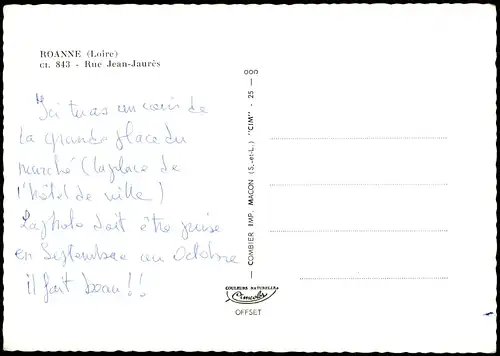 ROANNE (Loire)
Cl. 843 - Rue Jean-Jaurès
Ici tu as un coin de
la grande place du
marché (la place de
l'hôtel de ville)
La photo doit être prise
en Septembre ou Octobre
il fait beau!!
COMBIER IMP. MACON (S.-et-L.) "CIM" - 25 - 000
COULEURS NATURELLES
Cimcolor
OFFSET